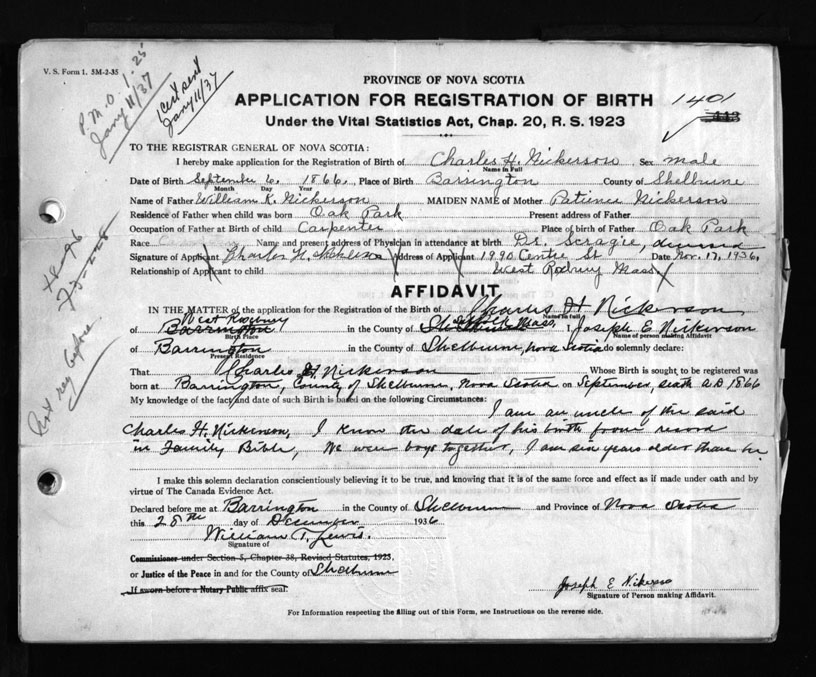 V. S. Form 1. 5M-2-35
P.M.O. 1.25
Jany 11/37
Cert sent
Jany 11/37
PROVINCE OF NOVA SCOTIA
APPLICATION FOR REGISTRATION OF BIRTH 1401
Under the Vital Statistics Act, Chap. 20, R. S. 1923
TO THE REGISTRAR GENERAL OF NOVA SCOTIA:
I hereby make application for the Registration of Birth of Charles H. Nickerson Sex male
Name in Full
Date of Birth September 6. 1866. Place of Birth Barrington County of Shelburne
Month Day Year
Name of Father William K. Nickerson MAIDEN NAME of Mother Patience Nickerson
Residence of Father when child was born Oak Park Present address of Father
Occupation of Father at Birth of Child Carpenter Place of birth of Father Oak Park
Race Name and present address of Physician in attendance at birth Dr.
Signature of Applicant Charles H. Nickerson Address of Applicant 1990 Centre St Date Nov. 17, 1936.
Relationship of Applicant to child West Roxbury Mass
AFFIDAVIT
IN THE MATTER of the application for the Registration of Birth of Charles H Nickerson
Name in full
West Roxbury
of Barrington in the County of Mass, I, Joseph E. Nickerson
Birth Place Name of person making Affidavit
of Barrington in the County of Shelburne, Nova Scotia do solemnly declare:
Present Residence
That Charles H Nickerson Whose Birth is sought to be registered was
born at Barrington, County of Shelburne, Nova Scotia on September, sixth A.D. 1866
My knowledge of the fact and date of such Birth is based on the following Circumstances:
I am an uncle of the said
Charles H. Nickerson, I know the date of his birth from record
in Family Bible, We were boys together, I am six years older than he.
I make this solemn declaration conscientiously believing it to be true, and knowing that it is of the same force and effect as if made under oath and by
virtue of The Canada Evidence Act.
Declared before me at Barrington in the County of Shelburne and Province of Nova Scotia
this 28th day of December 1936
William T. Lewis.
Signature of
Commissioner under Section 5, Chapter 38, Revised Statutes, 1923.
or Justice of the Peace in and for the County of Shelburne
If sworn before a Notary Public affix seal.
Joseph E Nickerson
Signature of Person making Affidavit.
For Information respecting the filling out of this Form, see Instructions on the reverse side.